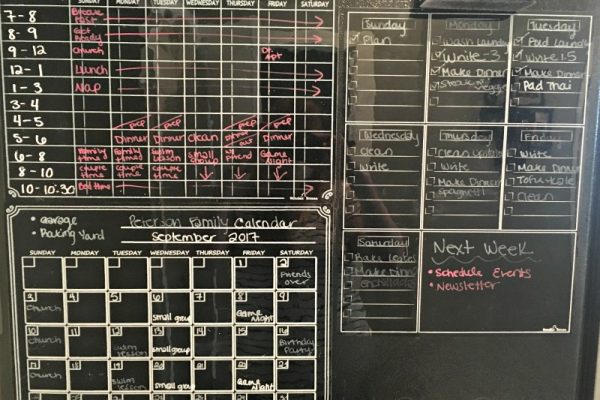 SUNDAY MONDAY TUESDAY WEDNESDAY THURSDAY FRIDAY SATURDAY
7-8
8-9 Get Ready
9-12 Church Dr. Apt
12-1 Lunch
1-3 Nap
3-4
4-5 prep prep prep prep
5-6 Dinner Dinner Clean Dinner out Dinner
6-8 Family time Family time Swim Lesson Small group w/ friend Game Night
8-10 couple time couple time couple time
10-10:30 Bed time
Garage
Peterson Family Calendar
September 2017
SUNDAY MONDAY TUESDAY WEDNESDAY THURSDAY FRIDAY SATURDAY
1 2 Friends over
3 Church 4 5 6 small group 7 8 Game Night 9
10 Church 11 12 Swim lesson 13 small group 14 15 16 Birthday Party
17 Church 18 19 Swim lesson 20 small group 21 22 Game Night 23
Sunday
Plan
Monday
Wash Laundry
Write - 3
Make Dinner
Steak + veggie
Tuesday
Fold Laundry
Write 1.5
Make Dinner
Pad Thai
Wednesday
Clean
Write
Thursday
Clean
Write
Make Dinner
spaghetti
Friday
Write
Make Dinner
Clean
Saturday
Make Dinner
enchiladas
Next Week
Schedule Events
Newsletter